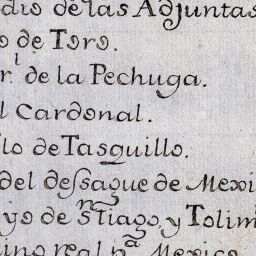 dio de las Adjuntas
o de Toro.
r.l de la Pechuga.
l Cardonal.
lo de Tasquillo.
del dessague de Mexi
yo de Sntiago, y Tolim
ino real pa Mexico